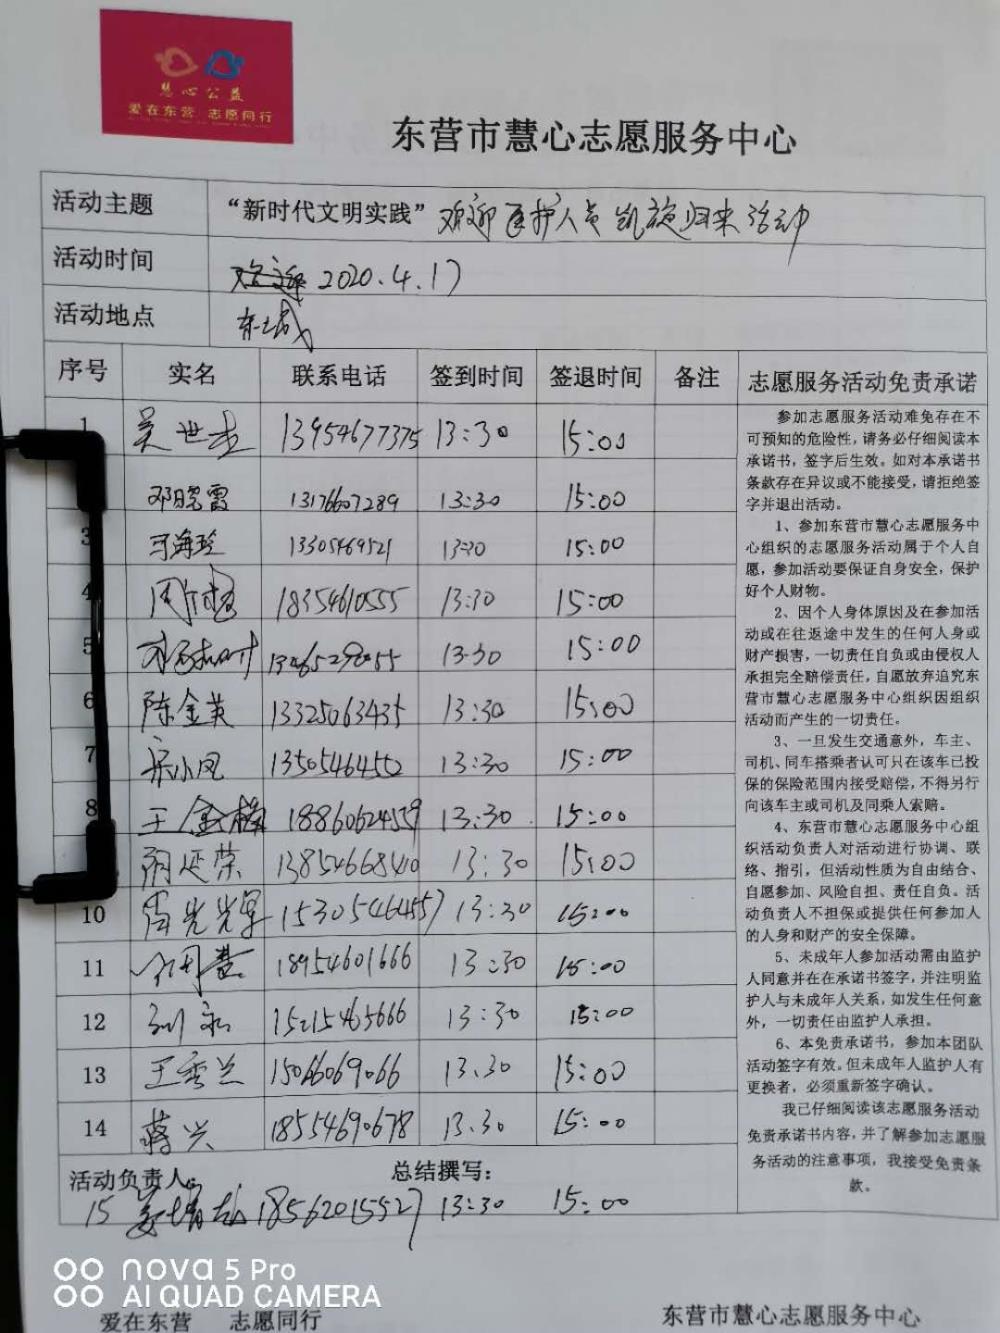 慧心公益
爱在东营 志愿同行
东营市慧心志愿服务中心
活动主题 “新时代文明实践” 欢迎医护人员凯旋归来活动
活动时间 2020.4.17
活动地点 东城
序号 实名 联系电话 签到时间 签退时间 备注 志愿服务活动免责承诺
1 吴世杰 13954677375 13:30 15:00
邓晓霞 13176607289 13:30 15:00
3 13305469521 13:30 15:00
4 18354610555 13:30 15:00
5 13:30 15:00
6 陈金英 13325063435 13:30 15:00
7 宋小凤 13505464552 13:30 15:00
8 王金梅 18860624559 13:30 15:00
胡延荣 13854668410 13:30 15:00
10 15305464557 13:30 15:00
11 18954601666 13:30 15:00
12 刘 15215465666 13:30 15:00
13 王秀兰 15066069066 13.30 15:00
14 蒋兴 18554690678 13.30 15:00
活动负责人: 总结撰写:
15 18562015527 13:30 15:00
参加志愿服务活动难免存在不
可预知的危险性，请务必仔细阅读本
承诺书，签字后生效。如对本承诺书
条款存在异议或不能接受，请拒绝签
字并退出活动。
1、参加东营市慧心志愿服务中
心组织的志愿服务活动属于个人自
愿，参加活动要保证自身安全，保护
好个人财物。
2、因个人身体原因及在参加活
动或在往返途中发生的任何人身或
财产损害，一切责任自负或由侵权人
承担完全赔偿责任，自愿放弃追究东
营市慧心志愿服务中心组织因组织
活动而产生的一切责任。
3、一旦发生交通意外，车主、
司机、同车搭乘者认可只在该车已投
保的保险范围内接受赔偿，不得另行
向该车主或司机及同乘人索赔。
4、东营市慧心志愿服务中心组
织活动负责人对活动进行协调、联
络、指引，但活动性质为自由结合、
自愿参加、风险自担、责任自负。活
动负责人不担保或提供任何参加人
的人身和财产的安全保障。
5、未成年人参加活动需由监护
人同意并在在承诺书签字，并注明监
护人与未成年人关系，如发生任何意
外，一切责任由监护人承担。
6、本免责承诺书，参加本团队
活动签字有效。但未成年人监护人有
更换者，必须重新签字确认。
我已仔细阅读该志愿服务活动
免责承诺书内容，并了解参加志愿服
务活动的注意事项，我接受免责条
款。
nova 5 Pro
AI QUAD CAMERA
爱在东营 志愿同行 东营市慧心志愿服务中心